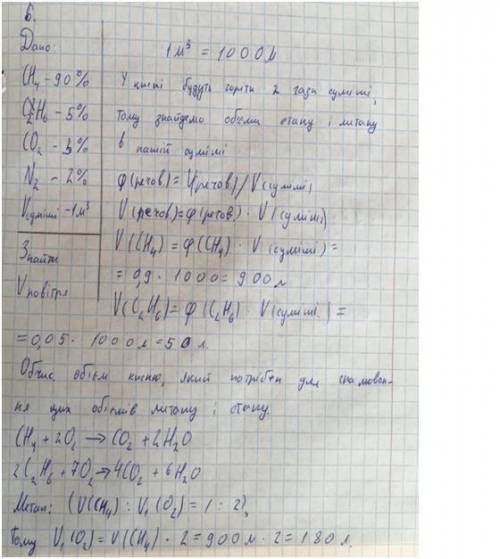 6.
Дано:
1 м³ = 1000 л
CH₄ - 90%
C₂H₆ - 5%
CO₂ - 3%
N₂ - 2%
Vсуміші - 1м³
Знайти
Vповітря
У кисні будуть горіти 2 гази суміші,
тому знайдемо обєми етану і метану
в нашій суміші
φ(речов.) = V(речов.) / V(суміші)
V(речов) = φ(речов.) · V(суміші)
V(CH₄) = φ(CH₄) · V(суміші) =
= 0,9 · 1000 = 900 л
V(C₂H₆) = φ(C₂H₆) · V(суміші.) =
= 0,05 · 1000 л = 50 л.
Обчис. обєм кисню, який потрібен для спалюван-
ня цих обємів метану і етану.
CH₄ + 2O₂ → CO₂ + 2H₂O
2C₂H₆ + 7O₂ → 4CO₂ + 6H₂O
Метан: (V(CH₄) : V₁(O₂) = 1 : 2),
Тому V₁(O₂) = V(CH₄) · 2 = 900 л · 2 = 180 л.